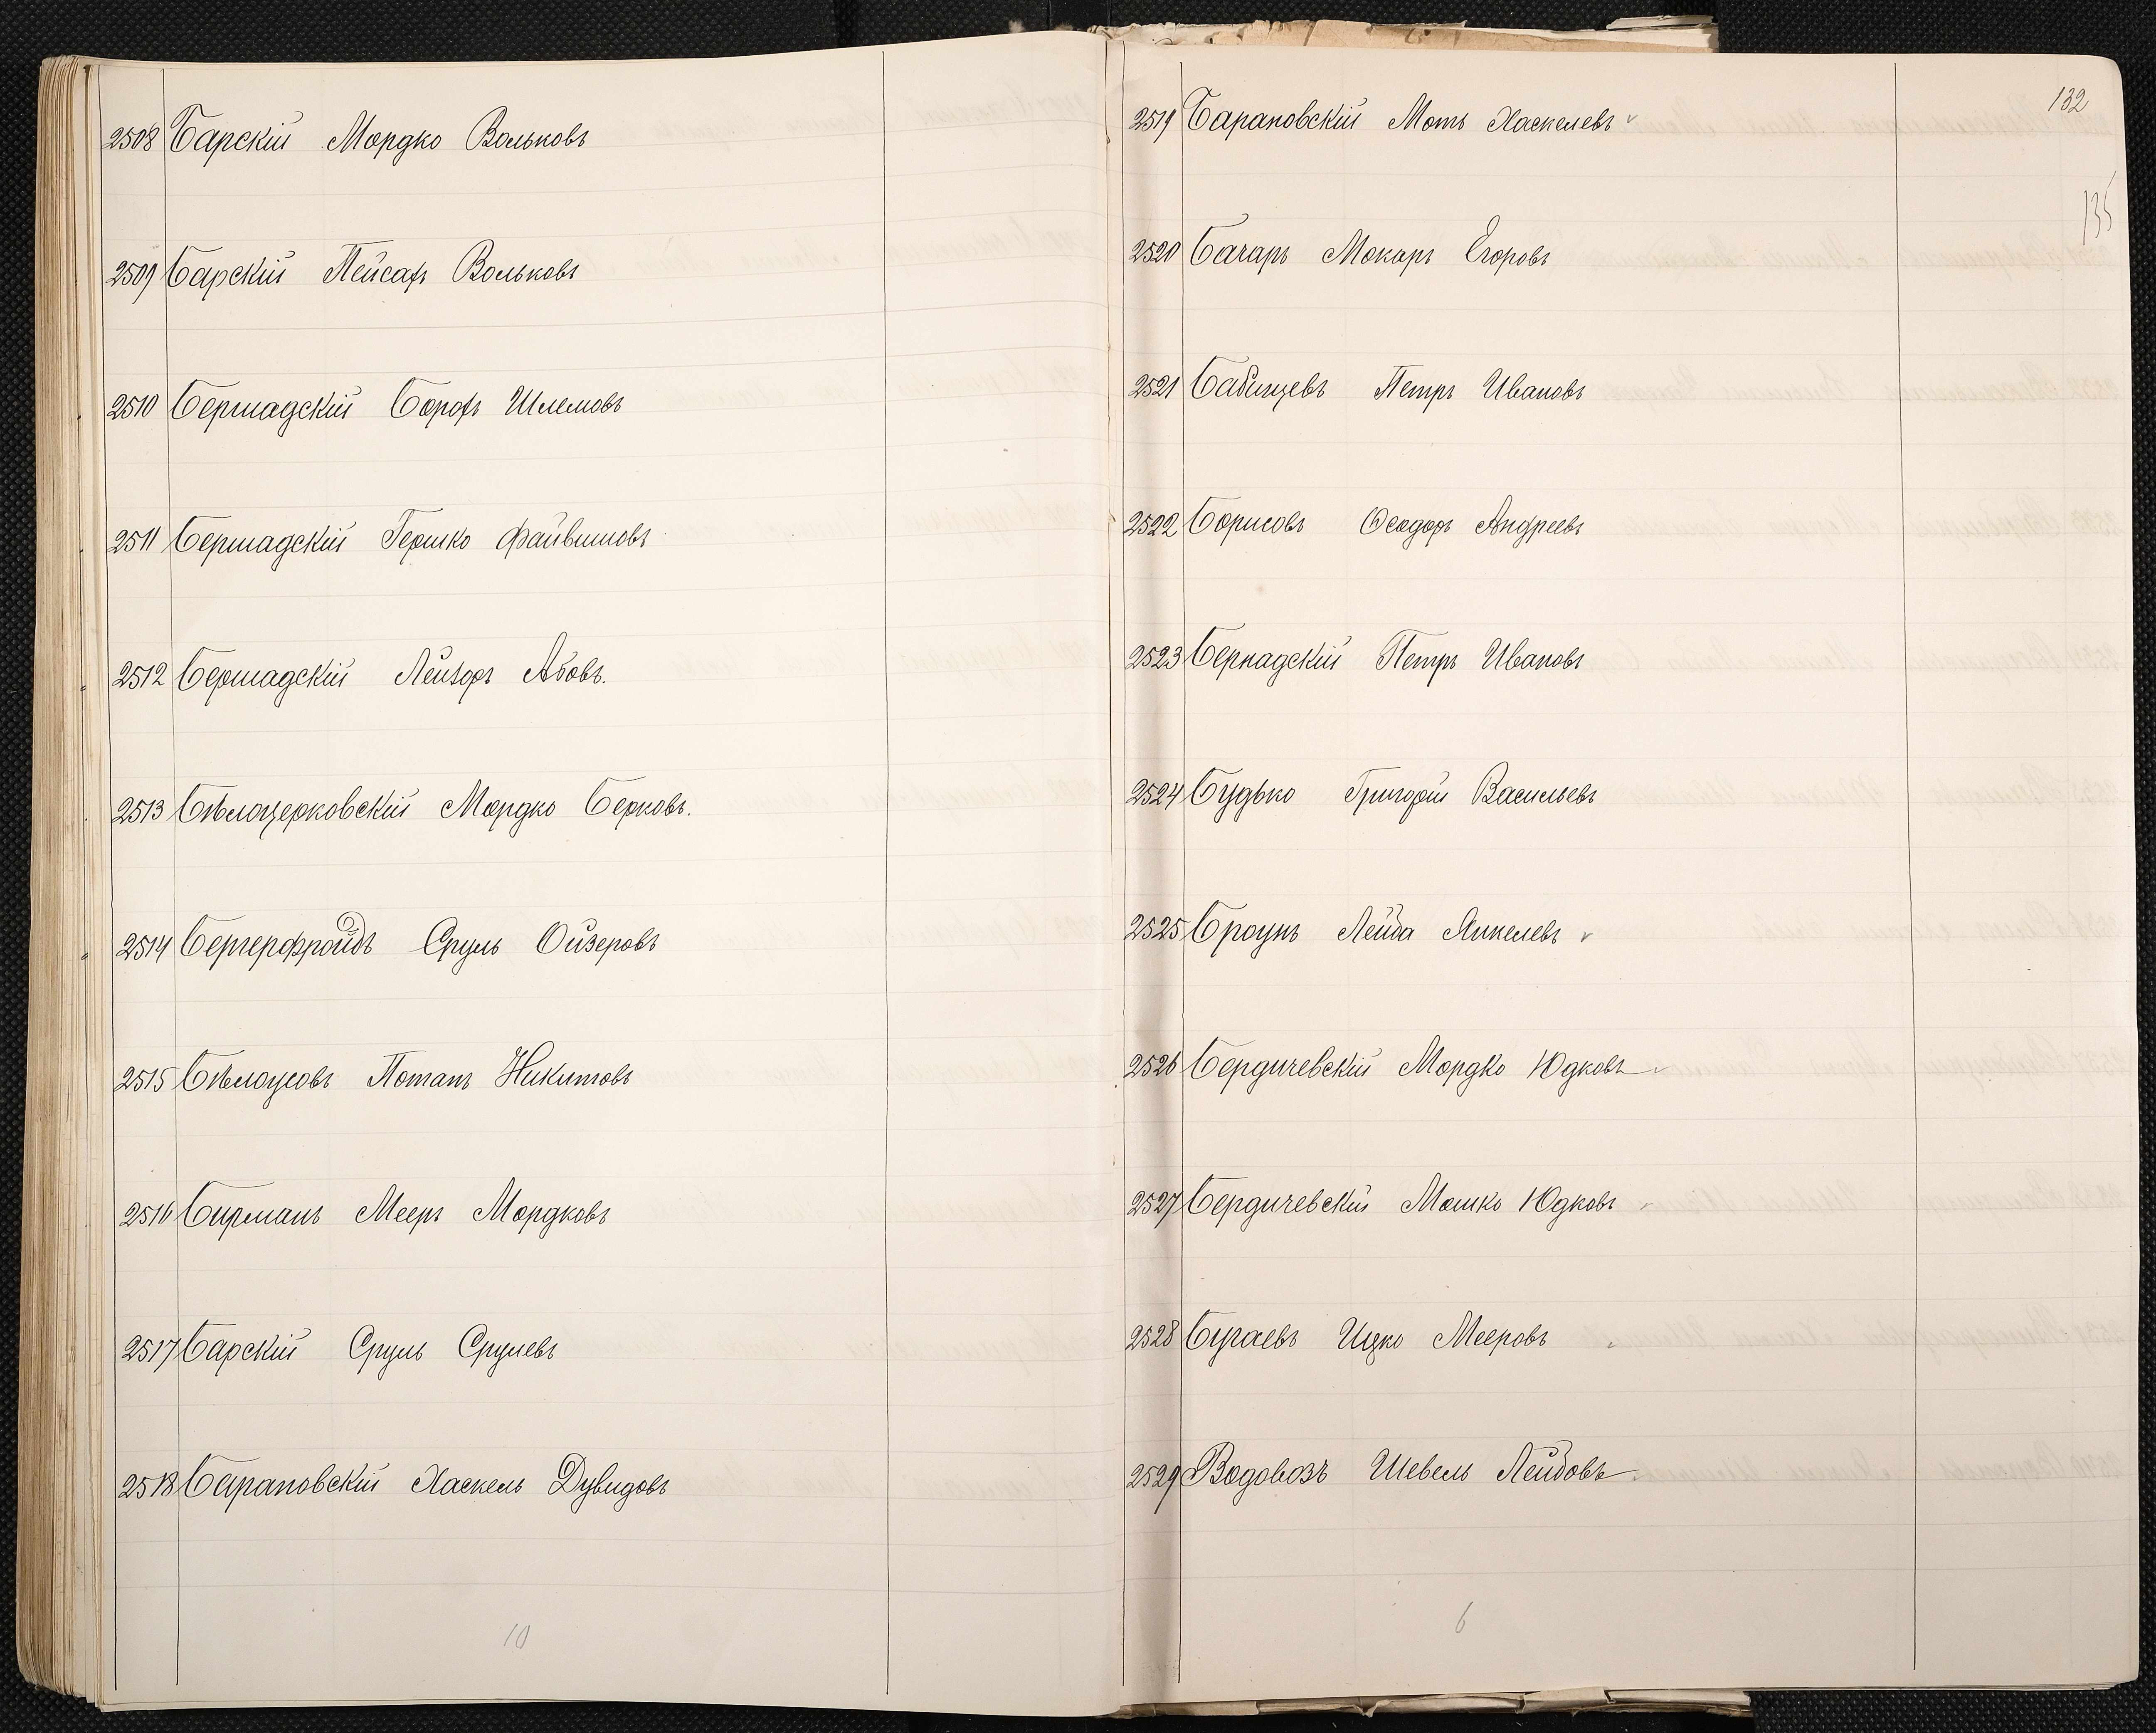 2508 Барскій Мордко Вольковъ
2509 Барскій Пейсахъ Вольковъ
2510 Бершадскій Борохъ Шлемовъ
2511 Бершадскій Гершко Файвишовъ
2512 Бершадскій Лейзоръ Абовъ.
2513 Бѣлоцерковскій Мордко Берковъ.
2514 Бергерфройдъ Сруль Ойзеровъ
2515 Бѣлоусовъ Потапъ Никитовъ
2516 Бирманъ Мееръ Мордковъ
2517 Барскій Сруль Срулевъ
2518 Барановскій Хаскель Дувидовъ
10
132
135
2519 Барановскій Моть Хаскелевъ
2520 Бачаръ Макаръ Егоровъ
2521 Бабинцевъ Петръ Ивановъ
2522 Борисовъ Ѳеодоръ Андреевъ
2523 Бернадскій Петръ Ивановъ
2524 Будько Григорій Васильевъ
2525 Броунъ Лейба Янкелевъ
2526 Бердичевскій Мордко Юдковъ
2527 Бердичевскій Мошко Юдковъ
2528 Бугаевъ Ицко Мееровъ
2529 Водовозъ Шевель Лейбовъ
6